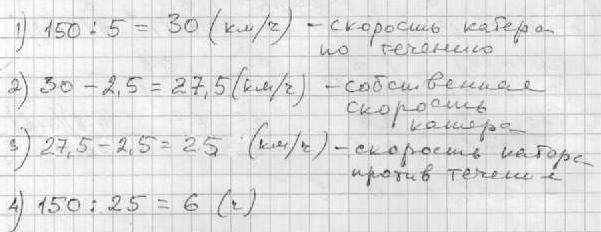 1) 150 : 5 = 30 (км/ч) – скорость катера
по течению
2) 30 – 2,5 = 27,5 (км/ч) – собственная
скорость
катера
3) 27,5 – 2,5 = 25 (км/ч) – скорость катера
против течения
4) 150 : 25 = 6 (ч)